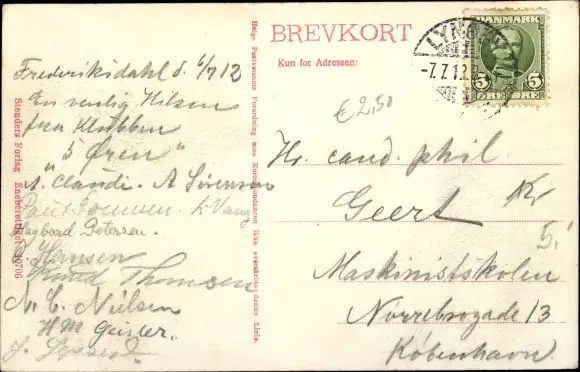 BREVKORT
Kun for Adressen:
LYNGBY
-7.7.12
DANMARK
5 5
ØRE ØRE
€ 2,50
Frederiksdahl d. 6/7 12
En venlig Hilsen
fra Klubben
"5 Øren"
A. Claudi. A Sørensen
Poul Poulsen. L Vang
Dagbard Petersen.
Hansen
Knud Thomsen
N. C. Nielsen
H M Geisler.
Hr. cand. phil
Geert
Kr
5,
Maskinistskolen
Nørrebrogade 13
København.
Stenders Forlag Eneberettiget 10706
Ifølge Postvæsnets Forordning maa Korrespondancen ikke overskride denne Linie.